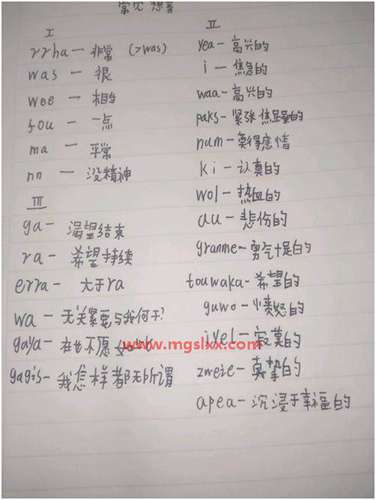 常见想音
I
rrha — 非常 (>was)
was — 很
wee — 相当
fou — 一点
ma — 平常
nn — 没精神
III
ga — 渴望结束
ra — 希望持续
erra — 大于ra
wa — 无关紧要与我何干?
gaya — 在也不愿
gagis — 我怎样都无所谓
II
yea — 高兴的
i — 焦急的
waa — 高兴的
paks — 紧张焦虑的
num — 莫得感情
ki — 认真的
wol — 热血的
au — 悲伤的
granme — 勇气十足的
touwaka — 希望的
guwo — 愤怒的
ivel — 寂寞的
zweie — 真挚的
apea — 沉浸于幸福的
www.mgslxx.com